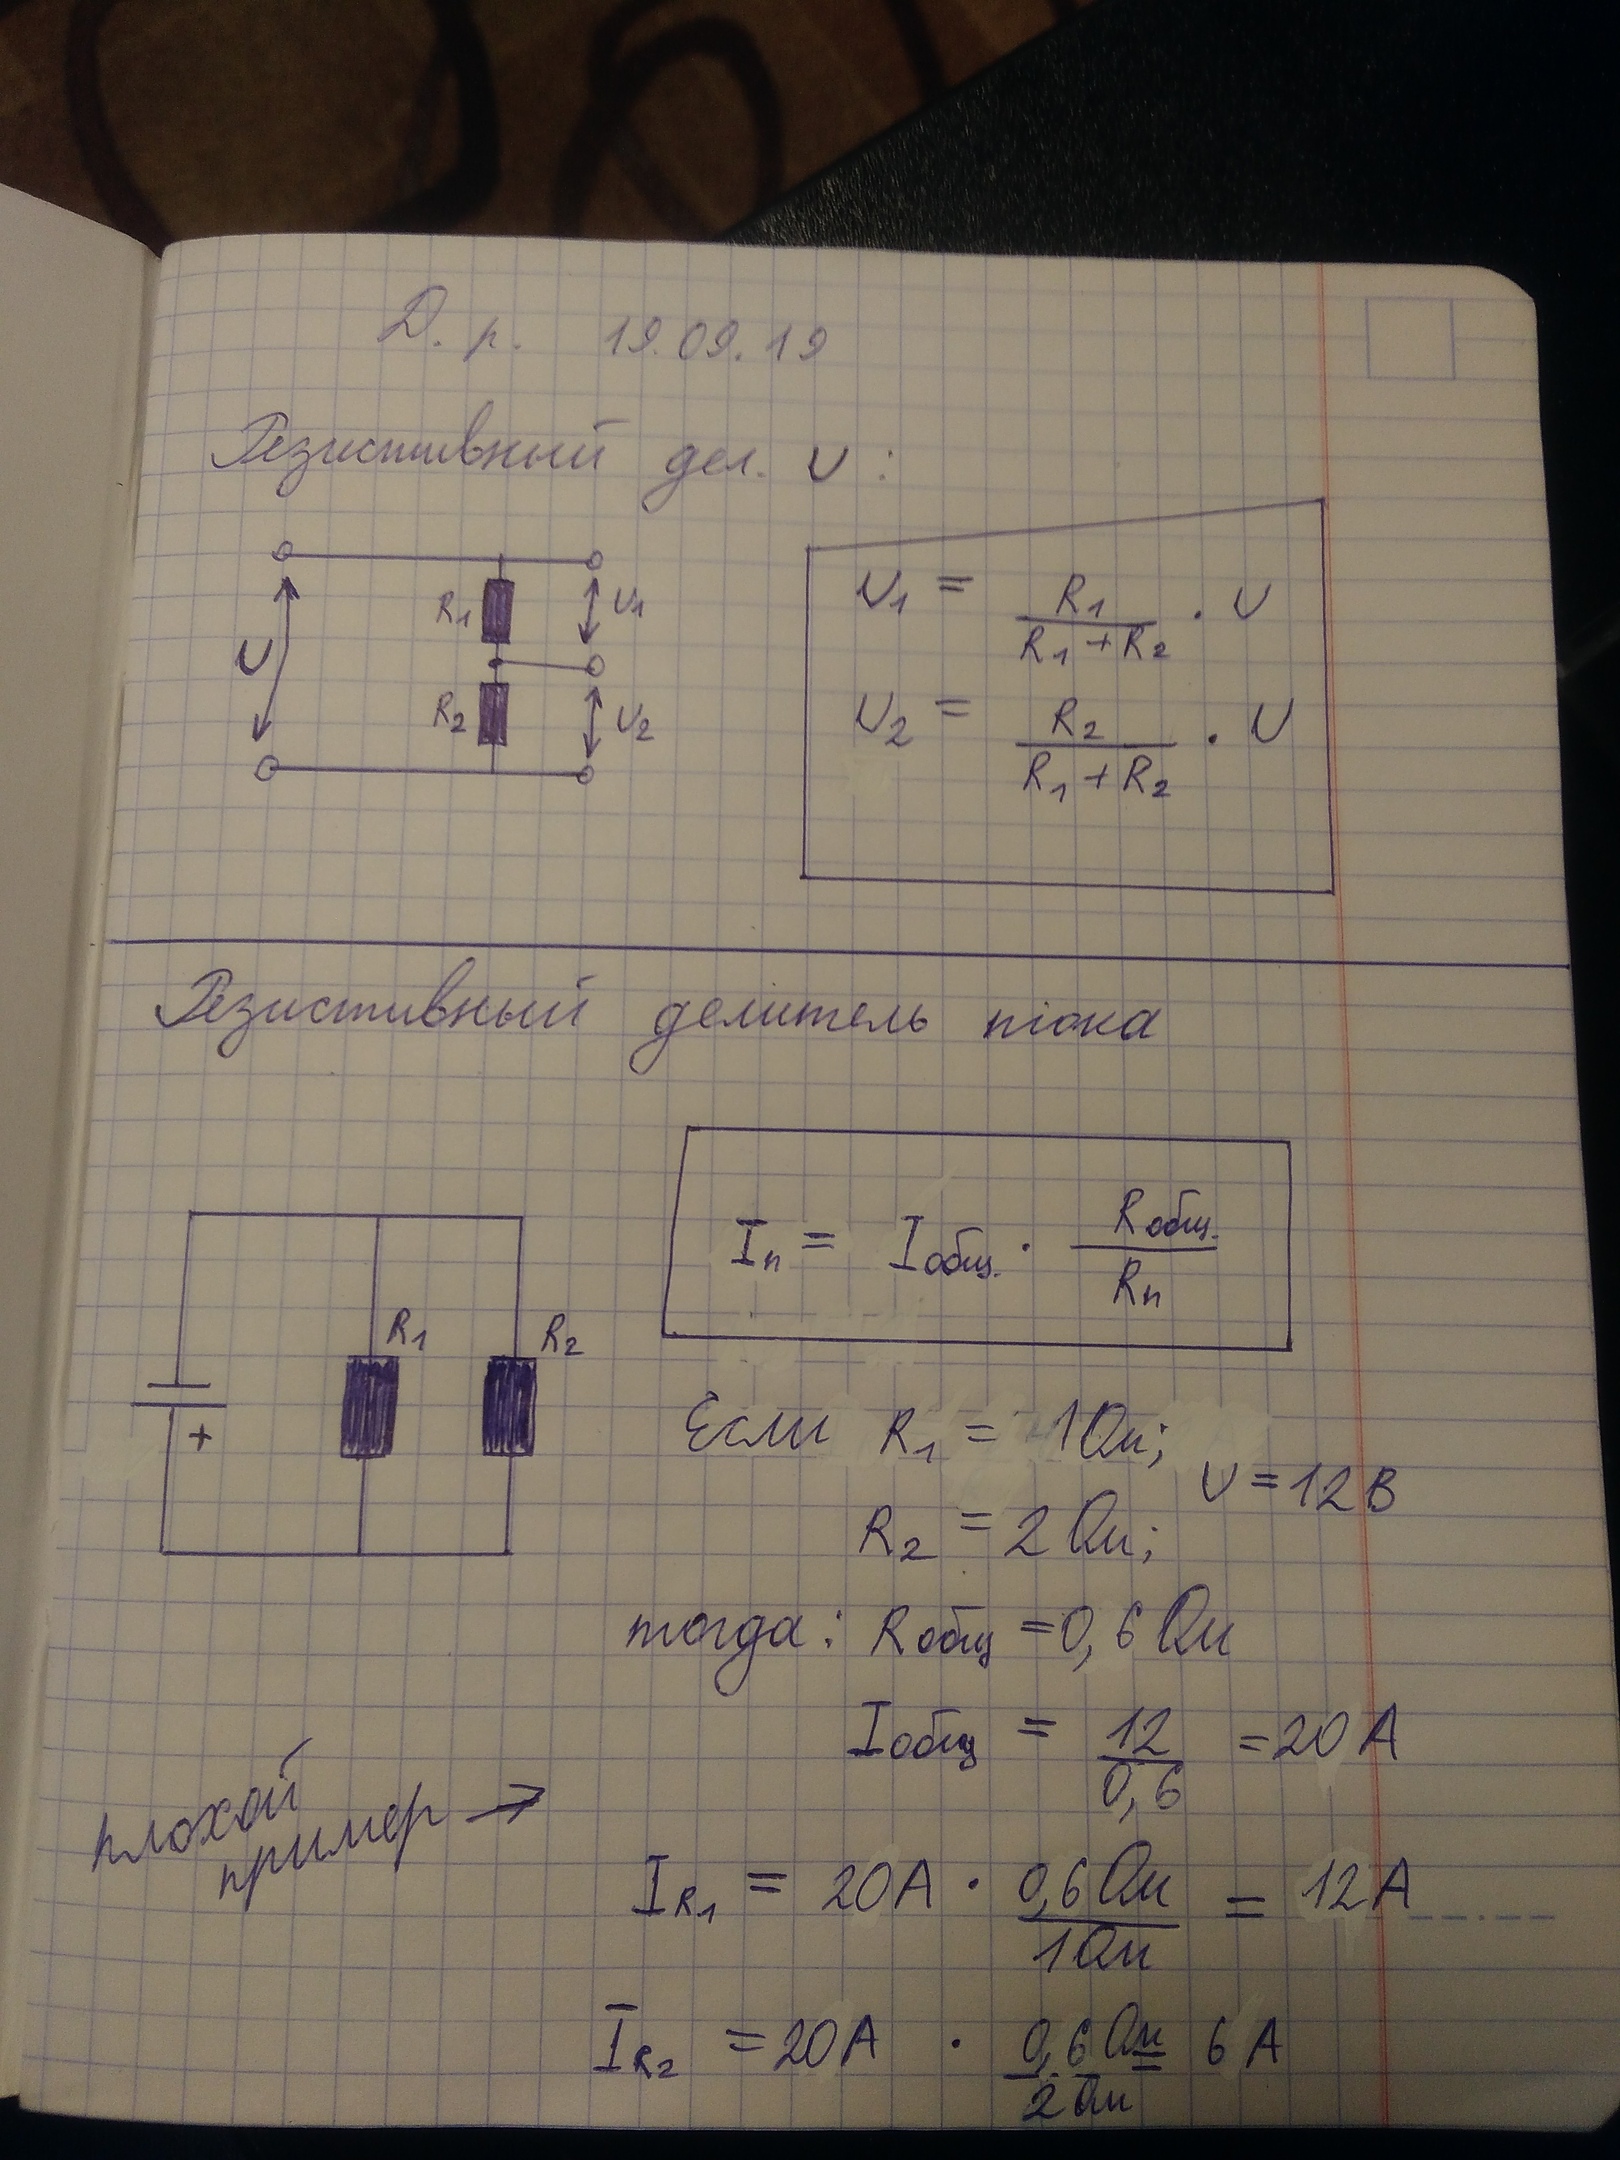 Д. р. 19.09.19
Резистивный дел. U :
R1
U1
U
R2
U2
U1 = R1 / R1 + R2 · U
U2 = R2 / R1 + R2 · U
Резистивный делитель тока
In = Iобщ. · Rобщ. / Rn
R1
R2
+
Если R1 = 1 Ом;
U = 12 В
R2 = 2 Ом;
тогда: Rобщ = 0,6 Ом
Iобщ = 12 / 0,6 = 20 А
плохой
пример →
IR1 = 20А · 0,6 Ом / 1 Ом = 12 А
IR2 = 20А · 0,6 Ом / 2 Ом = 6 А